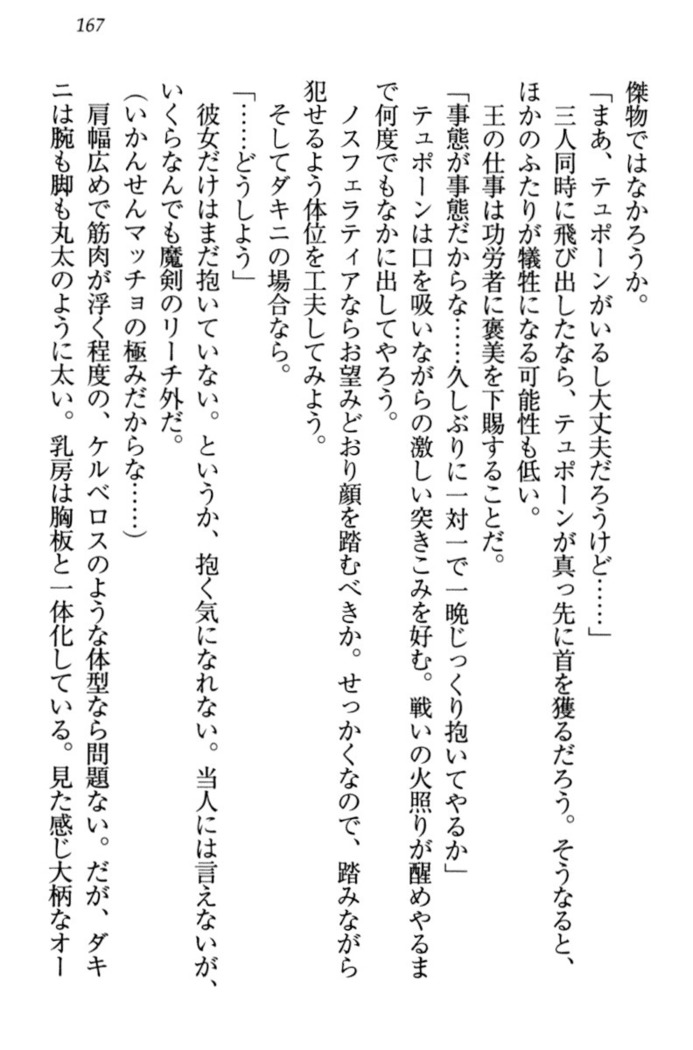 167
傑物ではなかろうか。
「まあ、テュポーンがいるし大丈夫だろうけど……」
三人同時に飛び出したなら、テュポーンが真っ先に首を獲るだろう。そうなると、
ほかのふたりが犠牲になる可能性も低い。
王の仕事は功労者に褒美を下賜することだ。
「事態が事態だからな……久しぶりに一対一で一晩じっくり抱いてやるか」
テュポーンは口を吸いながらの激しい突きこみを好む。戦いの火照りが醒めやるま
で何度でもなかに出してやろう。
ノスフェラティアならお望みどおり顔を踏むべきか。せっかくなので、踏みながら
犯せるよう体位を工夫してみよう。
そしてダキニの場合なら。
「……どうしよう」
彼女だけはまだ抱いていない。というか、抱く気になれない。当人には言えないが、
いくらなんでも魔剣のリーチ外だ。
（いかんせんマッチョの極みだからな……）
肩幅広めで筋肉が浮く程度の、ケルベロスのような体型なら問題ない。だが、ダキ
ニは腕も脚も丸太のように太い。乳房は胸板と一体化している。見た感じ大柄なオー